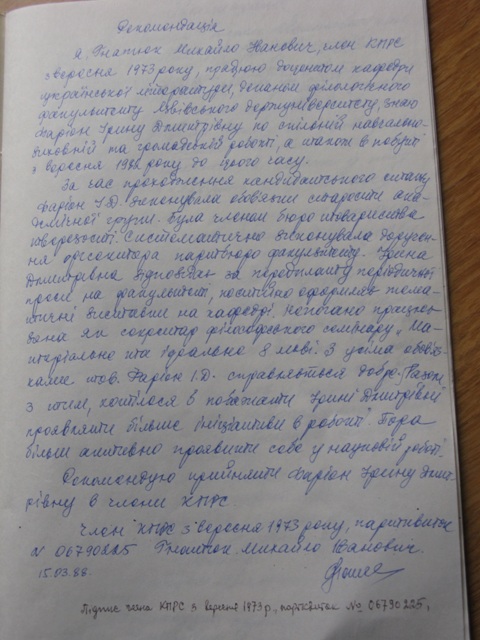 Рекомендація
Я, Гнатюк Михайло Іванович, член КПРС
з вересня 1973 року, працюю доцентом кафедри
української літератури, деканом філологічного
факультету Львівського держуніверситету, знаю
Фаріон Ірину Дмитрівну по спільній навчально-
виховній та громадській роботі, а також в побуті
з вересня 1982 року до цього часу.
За час проходження кандидатського стажу
Фаріон І.Д. виконувала обов'язки старости ака-
демічної групи. Була членом бюро товариства
тверезості. Систематично виконувала доручен-
ня оргсектора партбюро факультету. Ірина
Дмитрівна відповідає за передплату періодичної
преси на факультеті, постійно оформляє тема-
тичні виставки на кафедрі, непогано працює
як секретар філософського семінару „Ма-
теріальне та ідеальне в мові. З усіма обов'яз-
ками тов. Фаріон І.Д. справляється добре. Разом
з тим, хотілося б побажати Ірині Дмитрівні
проявляти більше ініціативи в роботі. Пора
більш активно проявити себе у науковій роботі.
Рекомендую прийняти Фаріон Ірину Дмит-
рівну в члени КПРС.
Член КПРС з вересня 1973 року, партквиток
N 06790225 Гнатюк Михайло Іванович.
15.03.88.
Підпис члена КПРС з вересня 1973 р., партквиток № 06790225,